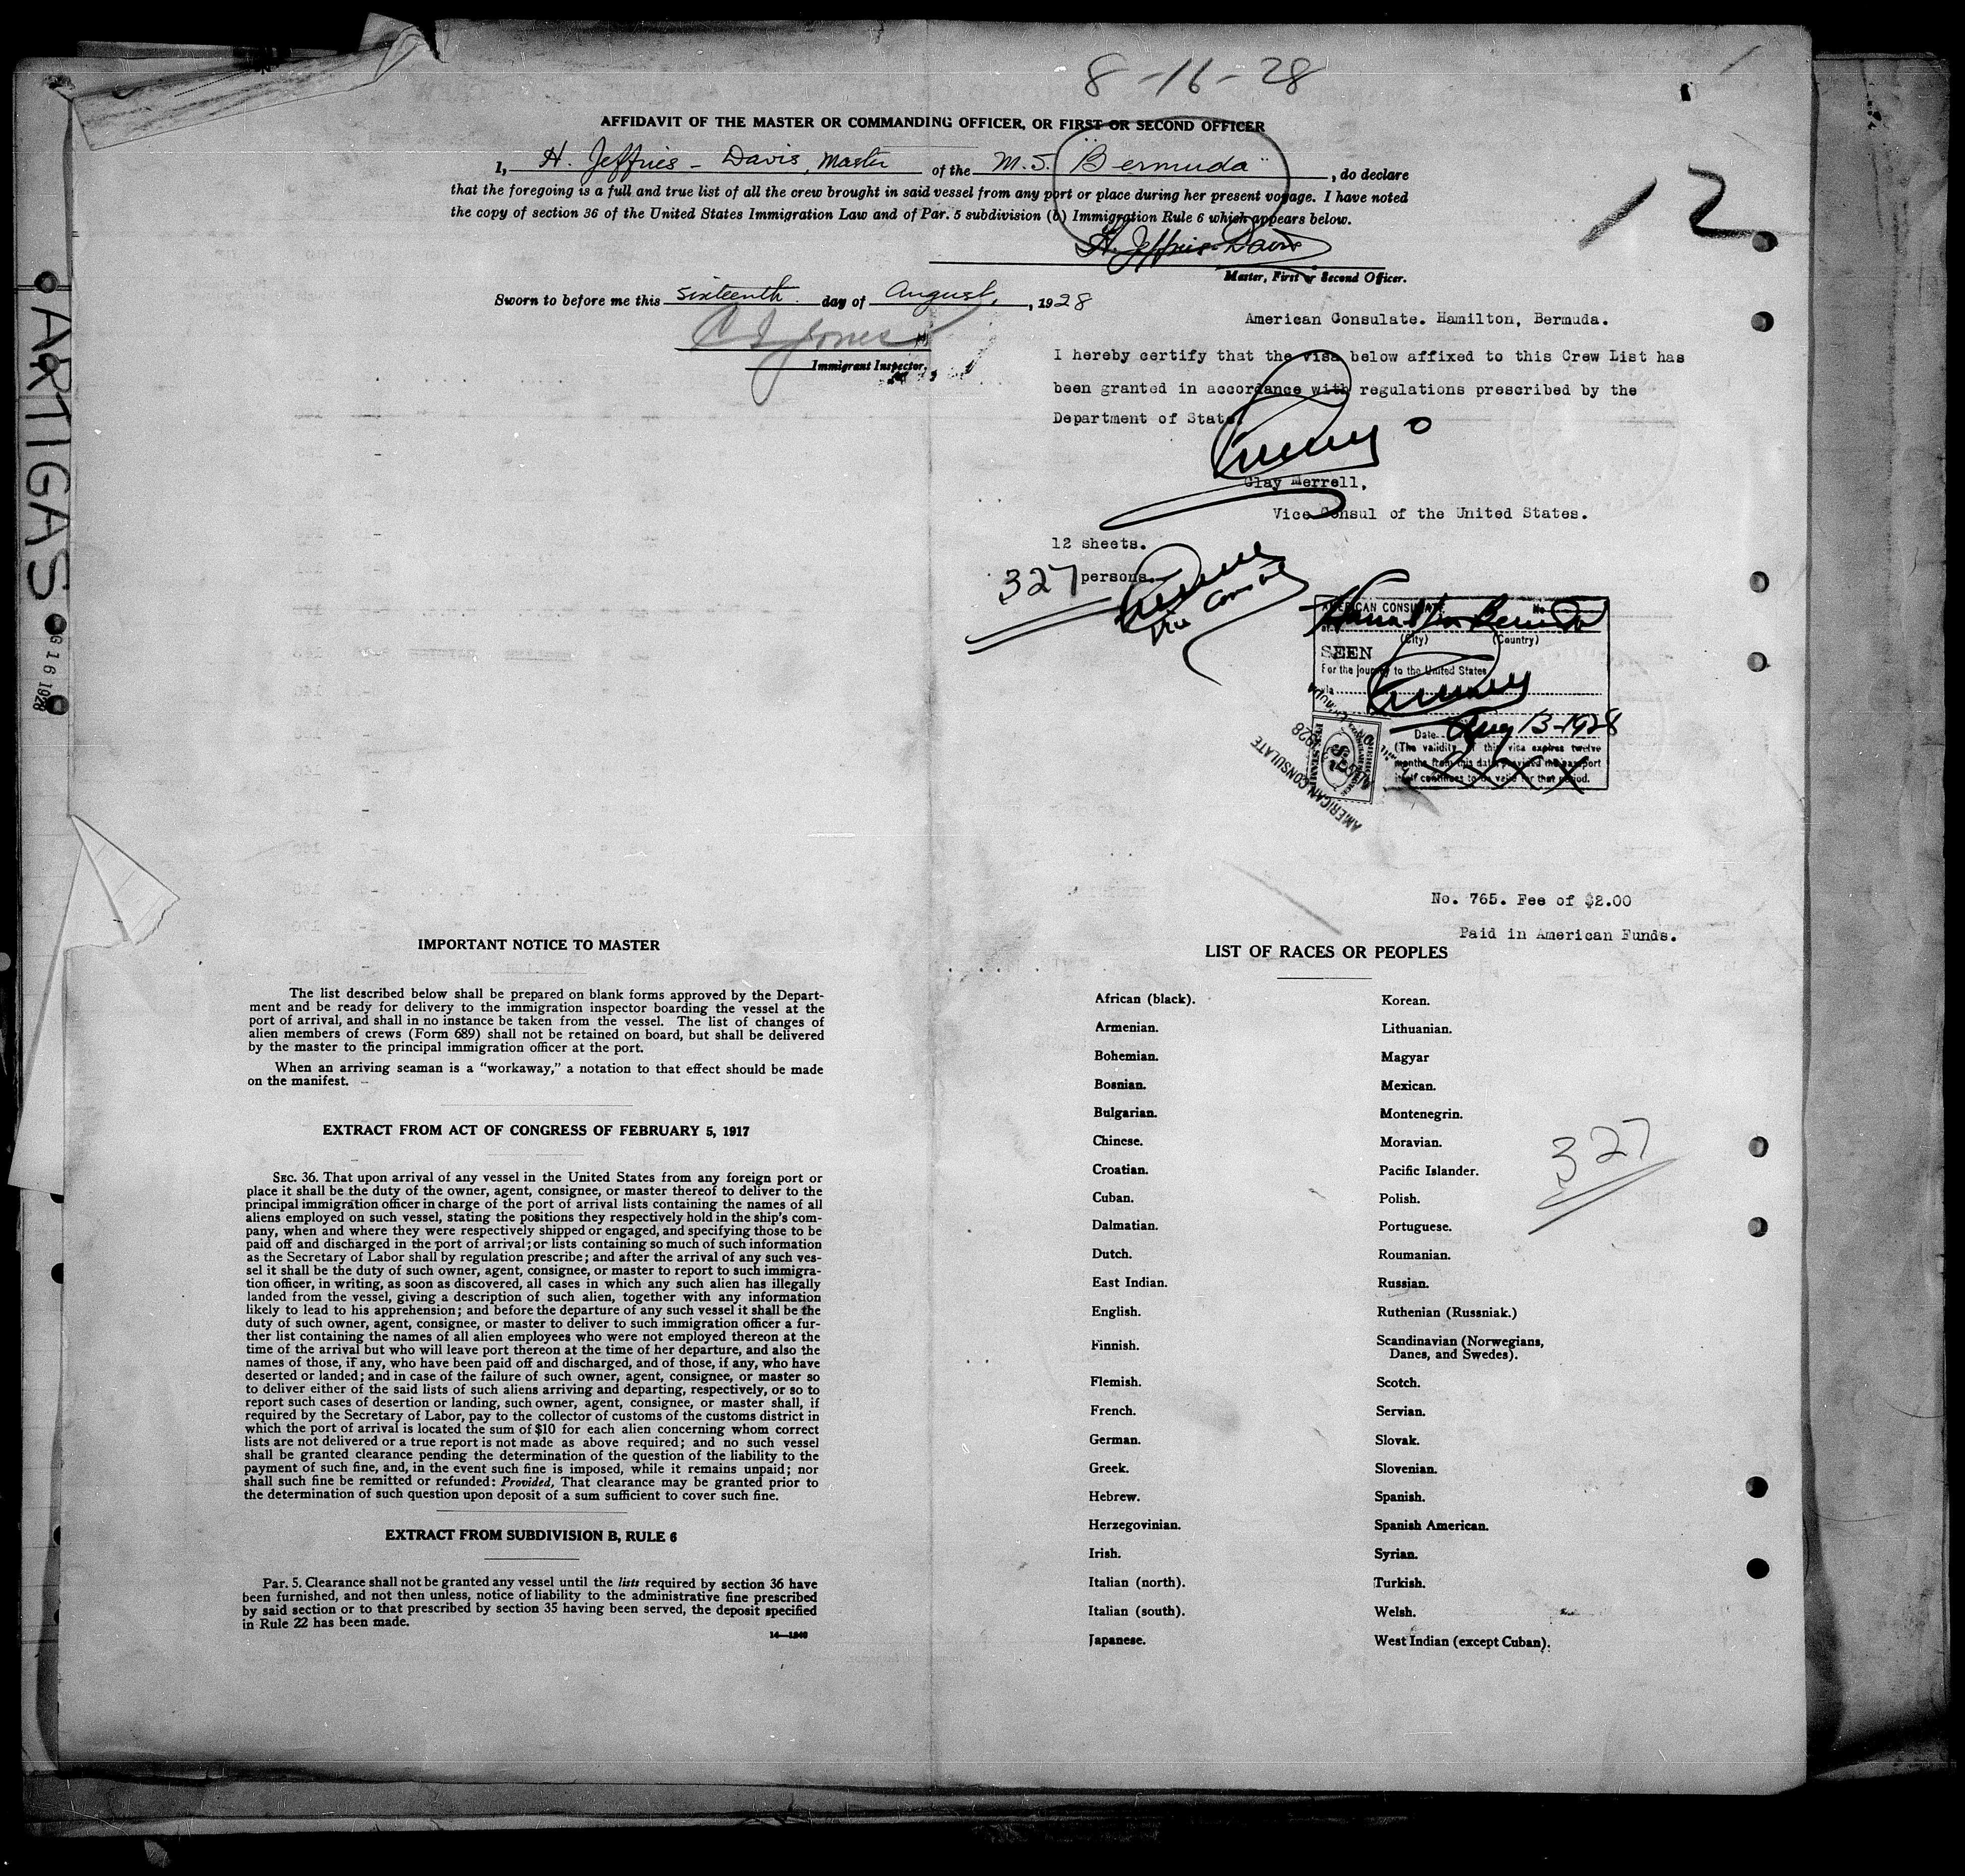 8-16-28
AFFIDAVIT OF THE MASTER OR COMMANDING OFFICER, OR FIRST OR SECOND OFFICER
I, H. Jeffries-Davis, Master of the M.S. "Bermuda", do declare
that the foregoing is a full and true list of all the crew brought in said vessel from any port or place during her present voyage. I have noted
the copy of section 36 of the United States Immigration Law and of Par. 5 subdivision (b) Immigration Rule 6 which appears below.
12
H. Jeffries-Davis
Master, First or Second Officer.
Sworn to before me this sixteenth day of August, 1928
Jones
Immigrant Inspector.
American Consulate. Hamilton, Bermuda.
I hereby certify that the visa below affixed to this Crew List has
been granted in accordance with regulations prescribed by the
Department of State.
Clay Merrell,
Vice Consul of the United States.
12 sheets.
327 persons.
AMERICAN CONSULATE No
Hamilton Bermuda
(City) (Country)
SEEN
For the journey to the United States
Date Aug 13-1928
(The validity of this visa expires twelve
months from this date provided the passport
itself continues to be valid for that period.
XXXX
AMERICAN CONSULATE
1928
ARTIGAS
G 16 1928
No. 765. Fee of $2.00
Paid in American Funds.
IMPORTANT NOTICE TO MASTER
The list described below shall be prepared on blank forms approved by the Depart-
ment and be ready for delivery to the immigration inspector boarding the vessel at the
port of arrival, and shall in no instance be taken from the vessel. The list of changes of
alien members of crews (Form 689) shall not be retained on board, but shall be delivered
by the master to the principal immigration officer at the port.
When an arriving seaman is a "workaway," a notation to that effect should be made
on the manifest.
EXTRACT FROM ACT OF CONGRESS OF FEBRUARY 5, 1917
SEC. 36. That upon arrival of any vessel in the United States from any foreign port or
place it shall be the duty of the owner, agent, consignee, or master thereof to deliver to the
principal immigration officer in charge of the port of arrival lists containing the names of all
aliens employed on such vessel, stating the positions they respectively hold in the ship's com-
pany, when and where they were respectively shipped or engaged, and specifying those to be
paid off and discharged in the port of arrival; or lists containing so much of such information
as the Secretary of Labor shall by regulation prescribe; and after the arrival of any such ves-
sel it shall be the duty of such owner, agent, consignee, or master to report to such immigra-
tion officer, in writing, as soon as discovered, all cases in which any such alien has illegally
landed from the vessel, giving a description of such alien, together with any information
likely to lead to his apprehension; and before the departure of any such vessel it shall be the
duty of such owner, agent, consignee, or master to deliver to such immigration officer a fur-
ther list containing the names of all alien employees who were not employed thereon at the
time of the arrival but who will leave port thereon at the time of her departure, and also the
names of those, if any, who have been paid off and discharged, and of those, if any, who have
deserted or landed; and in case of the failure of such owner, agent, consignee, or master so
to deliver either of the said lists of such aliens arriving and departing, respectively, or so to
report such cases of desertion or landing, such owner, agent, consignee, or master shall, if
required by the Secretary of Labor, pay to the collector of customs of the customs district in
which the port of arrival is located the sum of $10 for each alien concerning whom correct
lists are not delivered or a true report is not made as above required; and no such vessel
shall be granted clearance pending the determination of the question of the liability to the
payment of such fine, and, in the event such fine is imposed, while it remains unpaid; nor
shall such fine be remitted or refunded: Provided, That clearance may be granted prior to
the determination of such question upon deposit of a sum sufficient to cover such fine.
EXTRACT FROM SUBDIVISION B, RULE 6
Par. 5. Clearance shall not be granted any vessel until the lists required by section 36 have
been furnished, and not then unless, notice of liability to the administrative fine prescribed
by said section or to that prescribed by section 35 having been served, the deposit specified
in Rule 22 has been made.
LIST OF RACES OR PEOPLES
African (black).
Armenian.
Bohemian.
Bosnian.
Bulgarian.
Chinese.
Croatian.
Cuban.
Dalmatian.
Dutch.
East Indian.
English.
Finnish.
Flemish.
French.
German.
Greek.
Hebrew.
Herzegovinian.
Irish.
Italian (north).
Italian (south).
Japanese.
Korean.
Lithuanian.
Magyar
Mexican.
Montenegrin.
Moravian.
Pacific Islander.
Polish.
Portuguese.
Roumanian.
Russian.
Ruthenian (Russniak.)
Scandinavian (Norwegians,
Danes, and Swedes).
Scotch.
Servian.
Slovak.
Slovenian.
Spanish.
Spanish American.
Syrian.
Turkish.
Welsh.
West Indian (except Cuban).
327